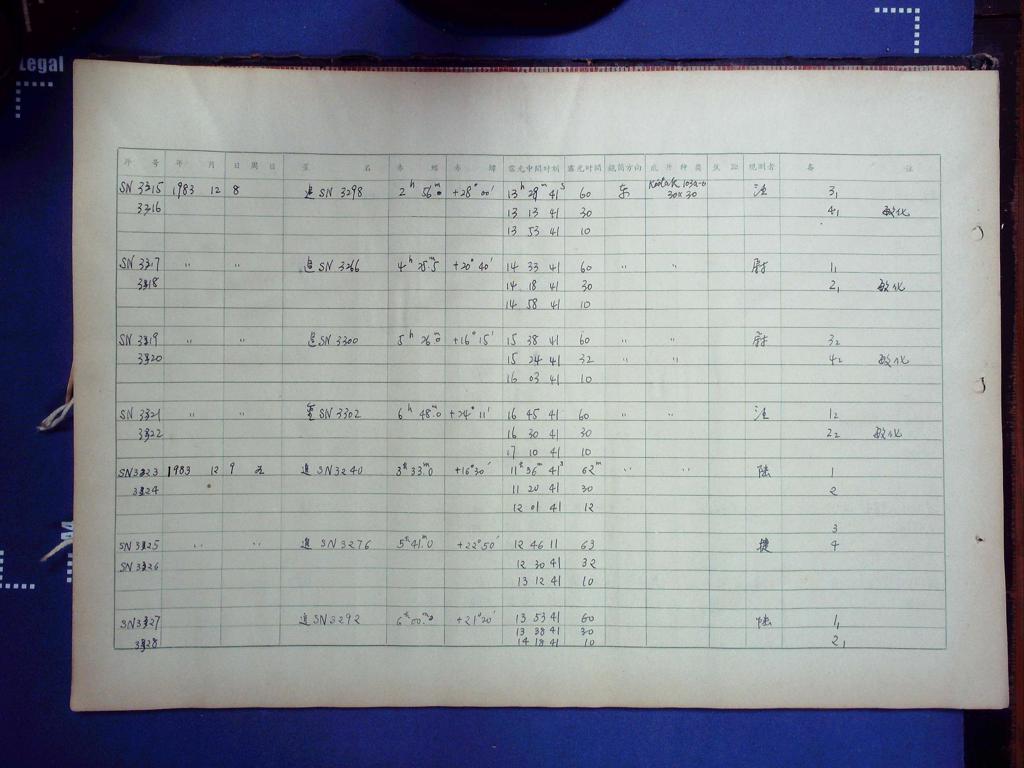 Legal
序 号 年 月 日 周 日 星 名 赤 经 赤 纬 露光中间时刻 露光时间 镜筒方向 底片种类 观测者 备 注
SN 3315 1983 12 8 追 SN 3298 2h 56m.0 +28° 00′ 13h 29m 41s 60 东 Kodak 103a-O 汪 3₁
3316 13 13 41 30 30×30 4₁ 敏化
13 53 41 10
SN 3317 " " 追 SN 3266 4h 25m.5 +20° 40′ 14 33 41 60 " " 尉 1₁
3318 14 18 41 30 2₁ 敏化
14 58 41 10
SN 3319 " " 追 SN 3300 5h 26m.0 +16° 15′ 15 38 41 60 " " 尉 3₂
3320 15 24 41 32 " " 4₂ 敏化
16 03 41 10
SN 3321 " " SN 3302 6h 48m.0 +24° 11′ 16 45 41 60 " " 汪 1₂
3322 16 30 41 30 2₂ 敏化
17 10 41 10
SN 3323 1983 12 9 五 追 SN 3240 3h 33m.0 +16° 30′ 11h 36m 41s 62m " " 陆 1
3324 11 20 41 30 2
12 01 41 12
3
SN 3325 " " 追 SN 3276 5h 41m.0 +22° 50′ 12 46 11 63 捷 4
SN 3326 12 30 41 32
13 12 41 10
SN 3327 追 SN 3292 6h 00m.0 +21° 20′ 13 53 41 60 陆 1₁
13 38 41 30
3328 14 18 41 10 2₁